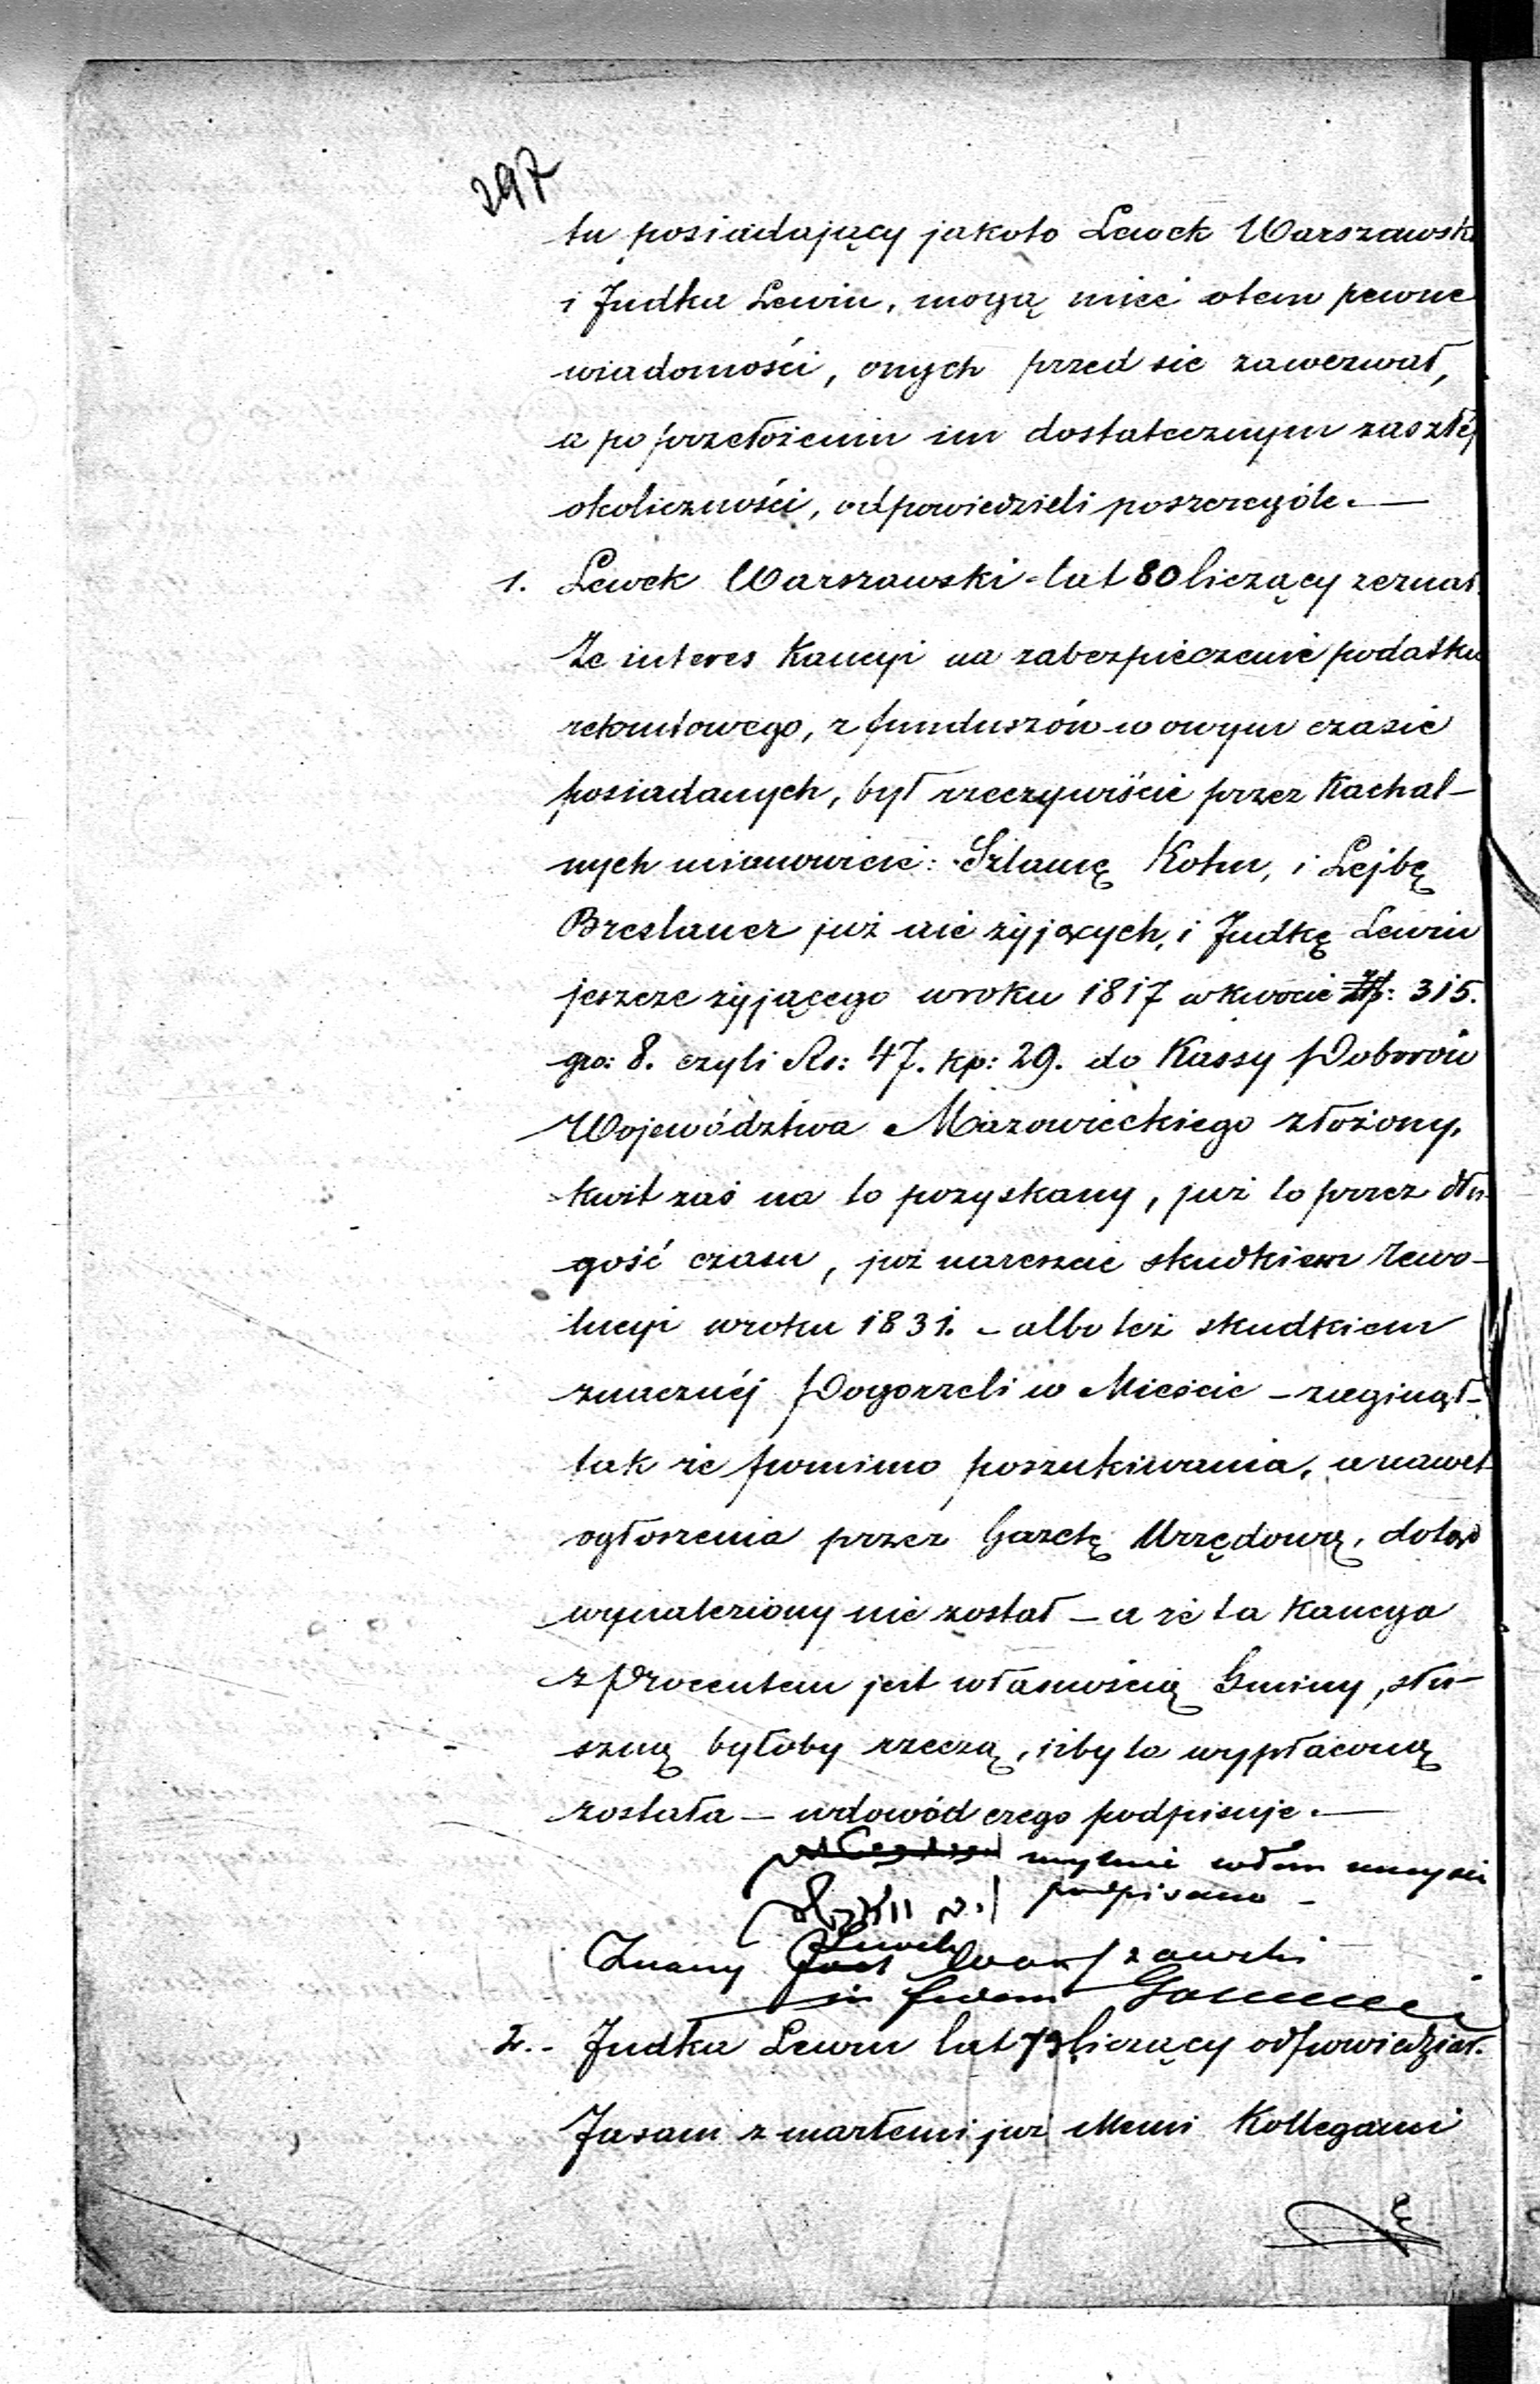 297
tu posiadający jakoto Lewek Warszawski
i Judka Lewin, mogą mieć otem pewne
wiadomości, onych przed sie zawezwał,
a po przełożeniu im dostatecznym zaszłéj
okoliczności, odpowiedzieli poszczególe. —
1. Lewek Warszawski - lat 80 liczący zeznał.
Że interes Kaucyi na zabezpieczenie podatku
rekrutowego, z funduszów w owym czasie
posiadanych, był rzeczywiście przez Kachal-
nych mianowicie: Szlamę Kohn, i Lejbę
Breslauer już nie żyjących, i Judkę Lewin
jeszcze żyjącego wroku 1817 w kwocie Złp: 315.
gro: 8. czyli Rs: 47. kp: 29. do Kassy Poborów
Województwa Mazowieckiego złożony.
kwit zaś na to pozyskany, już to przez dłu-
gość czasu, już nareszcie skudkiem rewo-
lucyi wroku 1831. - albo też skudkiem
znacznéj Pogorzeli w Mieście - zaginął -
tak że pomimo poszukiwania, a nawet
ogłoszenia przez Gazetę Urzędową, dotąd
wynaleziony nie został - a że ta Kaucya
z Procentem jest własnością Gminy, słu-
szną byłoby rzeczą, iżby ta wypłaconą
została - wdowód czego podpisuje. —
mylnie wtem miejscu
podpisano -
Znany Lewek Warszawski
in fidem
2. - Judka Lewin lat 73 liczący odpowiedział.
Jasam z marłemi już Memi Kollegami